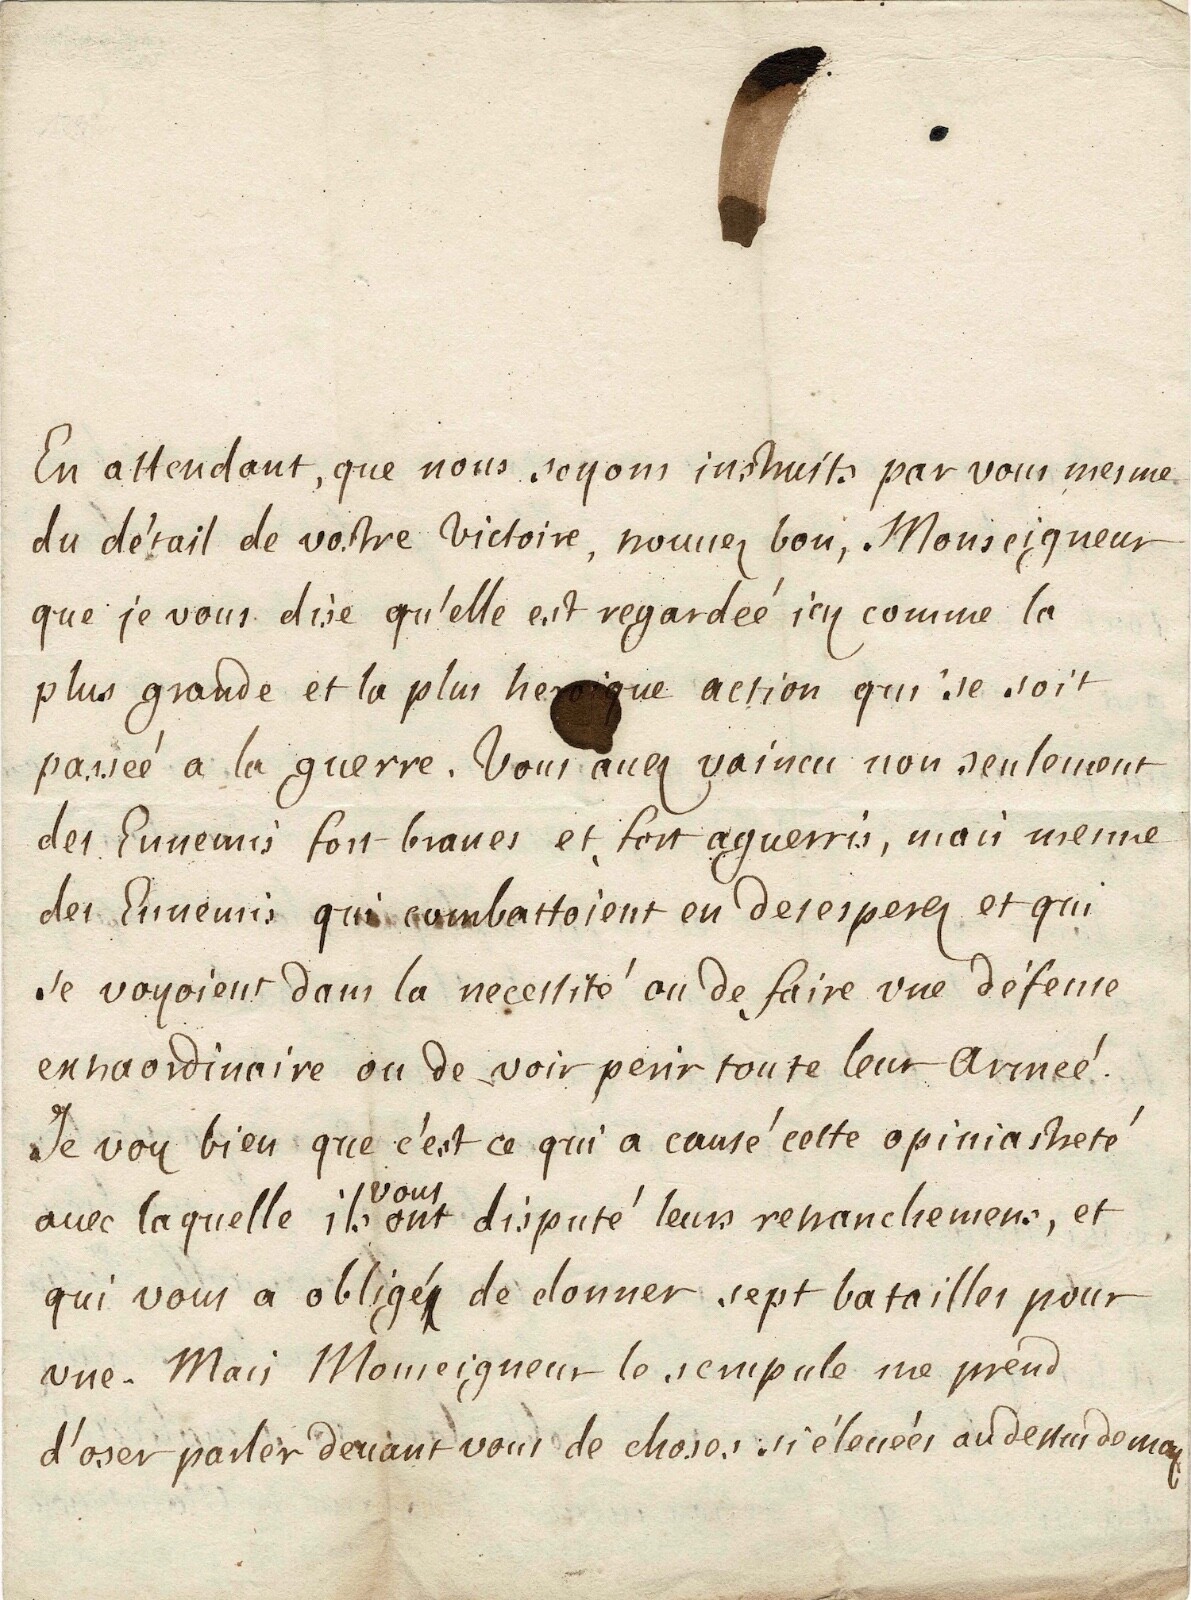 En attendant, que nous soyons instruits par vous mesme
du détail de vostre Victoire, trouuez bon, Monseigneur
que je vous dise qu'elle est regardeé icy comme la
plus grande et la plus heroique action qui se soit
passeé a la guerre. Vous auez vaincu non seulement
des Ennemis fort braues et fort aguerris, mais mesme
des Ennemis qui combattoient en desesperez et qui
se voyoient dans la necessité ou de faire vne défense
extraordinaire ou de voir perir toute leur Armeé.
Je voy bien que c'est ce qui a causé cette opiniastreté
auec laquelle ils vous ont disputé leurs retranchemens, et
qui vous a obligé de donner sept batailles pour
vne. Mais Monseigneur le scrupule me prend
d'oser parler deuant vous de choses si éleuées au dessus de moy